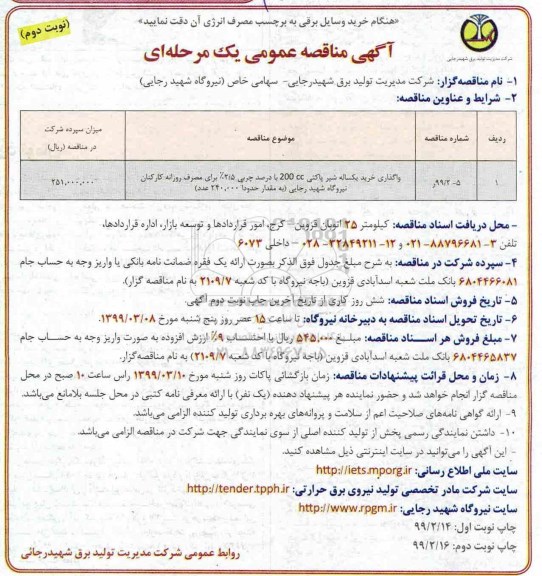 «هنگام خرید وسایل برقی به برچسب مصرف انرژی آن دقت نمایید»
(نوبت دوم)
شرکت مدیریت تولید برق شهیدرجایی
آگهی مناقصه عمومی یک مرحله‌ای
۱- نام مناقصه‌گزار: شرکت مدیریت تولید برق شهیدرجایی- سهامی خاص (نیروگاه شهید رجایی)
۲- شرایط و عناوین مناقصه:
ردیف شماره مناقصه موضوع مناقصه میزان سپرده شرکت در مناقصه (ریال)
۱ ۵-۹۹/۲ر واگذاری خرید یکساله شیر پاکتی 200 cc با درصد چربی ۲/۵٪ برای مصرف روزانه کارکنان نیروگاه شهید رجایی (به مقدار حدودا ۲۴۰,۰۰۰ عدد) ۲۵۱,۰۰۰,۰۰۰
- محل دریافت اسناد مناقصه: کیلومتر ۲۵ اتوبان قزوین - کرج، امور قراردادها و توسعه بازار، اداره قراردادها،
تلفن ۳-۸۸۷۹۶۶۸۱-۰۲۱ و ۱۲-۳۲۸۴۹۲۱۱-۰۲۸ - داخلی ۶۰۷۳
۴- سپرده شرکت در مناقصه: به شرح مبلغ جدول فوق الذکر بصورت ارائه یک فقره ضمانت نامه بانکی یا واریز وجه به حساب جام
۶۸۰۴۴۶۶۰۸۱ بانک ملت شعبه اسدآبادی قزوین (باجه نیروگاه با کد شعبه ۲۱۰۹/۷) به نام مناقصه گزار.
۵- تاریخ فروش اسناد مناقصه: شش روز کاری از تاریخ آخرین چاپ نوبت دوم آگهی.
۶- تاریخ تحویل اسناد مناقصه به دبیرخانه نیروگاه: تا ساعت ۱۵ عصر روز پنج شنبه مورخ ۱۳۹۹/۰۳/۰۸.
۷- مبلغ فروش هر اسناد مناقصه: مبلغ ۵۴۵,۰۰۰ ریال با احتساب ۹٪ ارزش افزوده به صورت واریز وجه به حساب جام
۶۸۰۴۴۶۵۸۳۷ بانک ملت شعبه اسدآبادی قزوین (باجه نیروگاه با کد شعبه ۲۱۰۹/۷) به نام مناقصه‌گزار.
۸- زمان و محل قرائت پیشنهادات مناقصه: زمان بازگشائی پاکات روز شنبه مورخ ۱۳۹۹/۰۳/۱۰ راس ساعت ۱۰ صبح در محل
مناقصه گزار انجام خواهد شد و حضور نماینده هر پیشنهاد دهنده (یک نفر) با ارائه معرفی نامه کتبی در محل جلسه بلامانع می‌باشد.
۹- ارائه گواهی نامه‌های صلاحیت اعم از سلامت و پروانه‌های بهره برداری تولید کننده الزامی می‌باشد.
۱۰- داشتن نمایندگی رسمی پخش از تولید کننده اصلی از سوی نمایندگی جهت شرکت در مناقصه الزامی می‌باشد.
- این آگهی را می‌توانید در سایت اینترنتی ذیل مشاهده کنید.
سایت ملی اطلاع رسانی: http://iets.mporg.ir
سایت شرکت مادر تخصصی تولید نیروی برق حرارتی: http://tender.tpph.ir
سایت نیروگاه شهید رجایی: http://www.rpgm.ir
چاپ نوبت اول: ۹۹/۲/۱۴
چاپ نوبت دوم: ۹۹/۲/۱۶
روابط عمومی شرکت مدیریت تولید برق شهیدرجائی